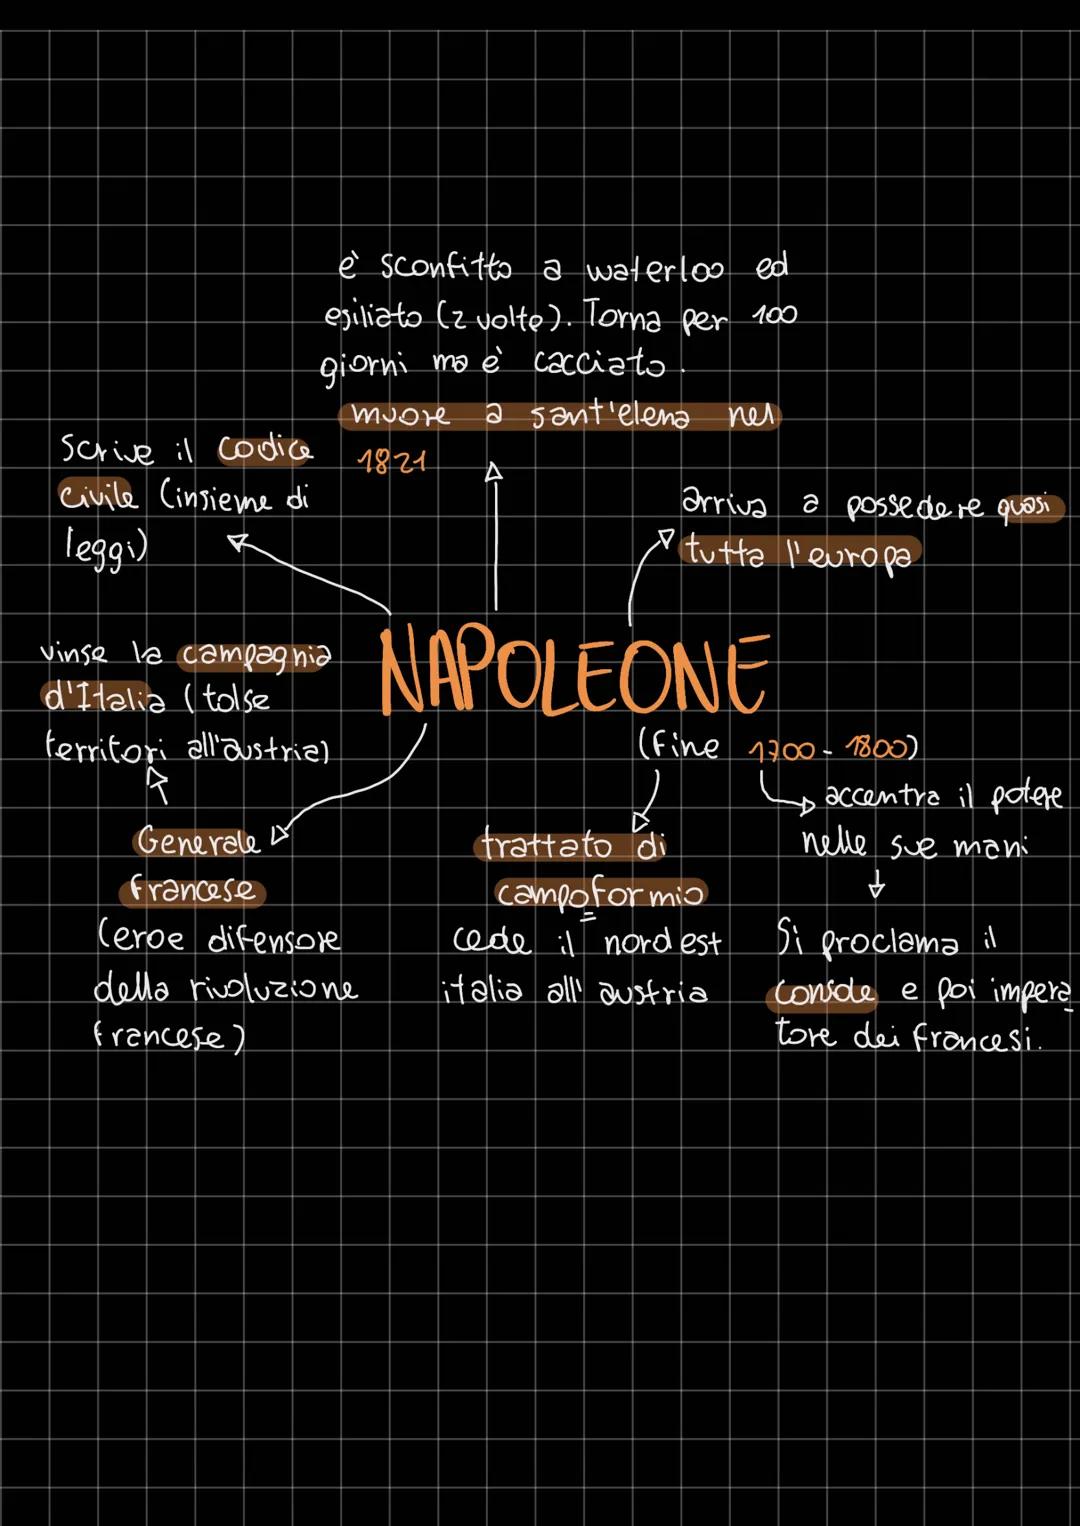 è sconfitto a waterloo ed
esiliato (2 volte). Torna per 100
giorni ma è cacciato.
muore a sant'elena nel
1821
scrive il codice
civile (insieme di
leggi)
arriva a possedere quasi
tutta l'europa
vinse la campagnia
d'Italia (tolse
territori all'austria)
NAPOLEONE
(fine 1700 - 1800)
accentra il potere
nelle sue mani
Generale
francese
(eroe difensore
della rivoluzione
francese)
trattato di
campoformio
cede il nord est
italia all'austria
Si proclama il
console e poi impera
tore dei francesi.